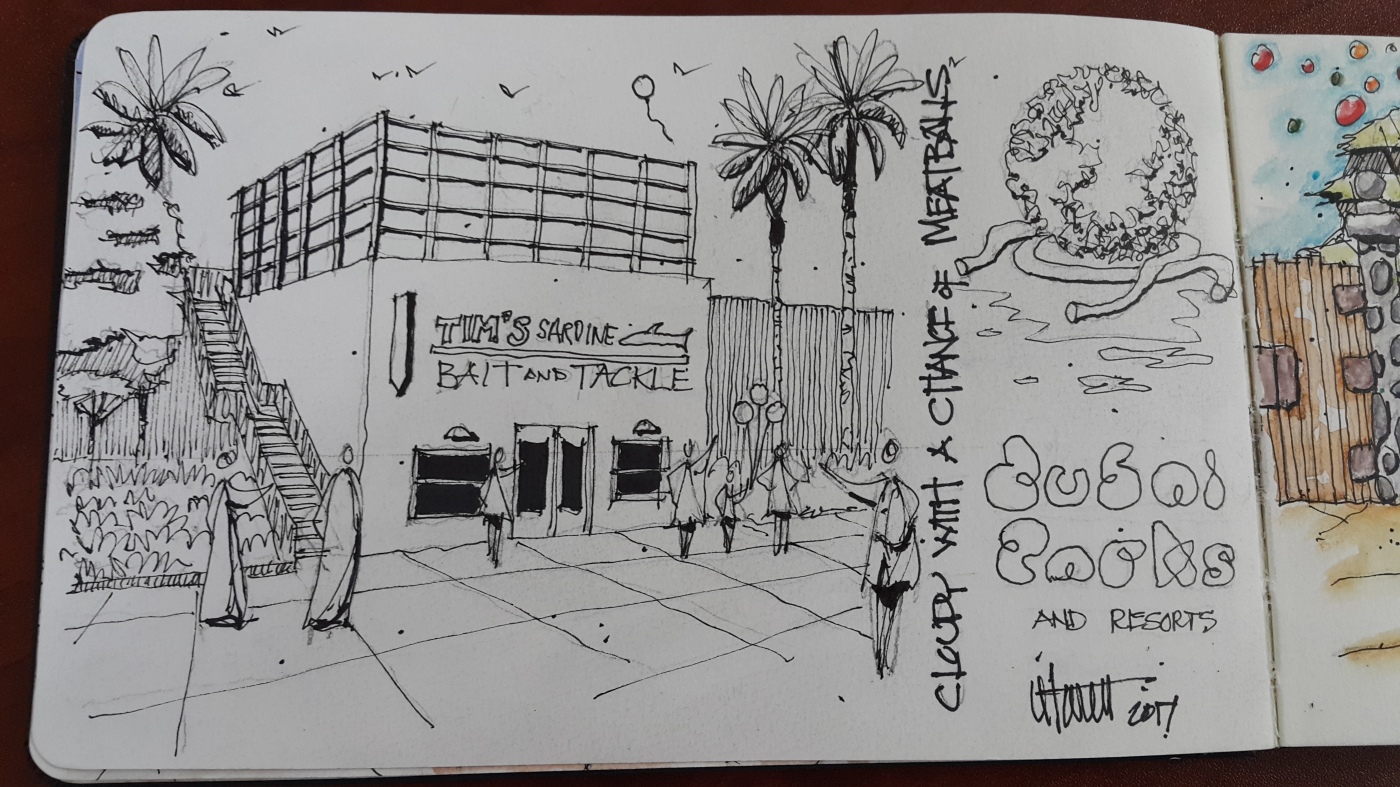 TIM'S SARDINE
BAIT AND TACKLE
CLOUDY WITH A CHANCE OF MEATBALLS
Dubai
Parks
AND RESORTS
2017